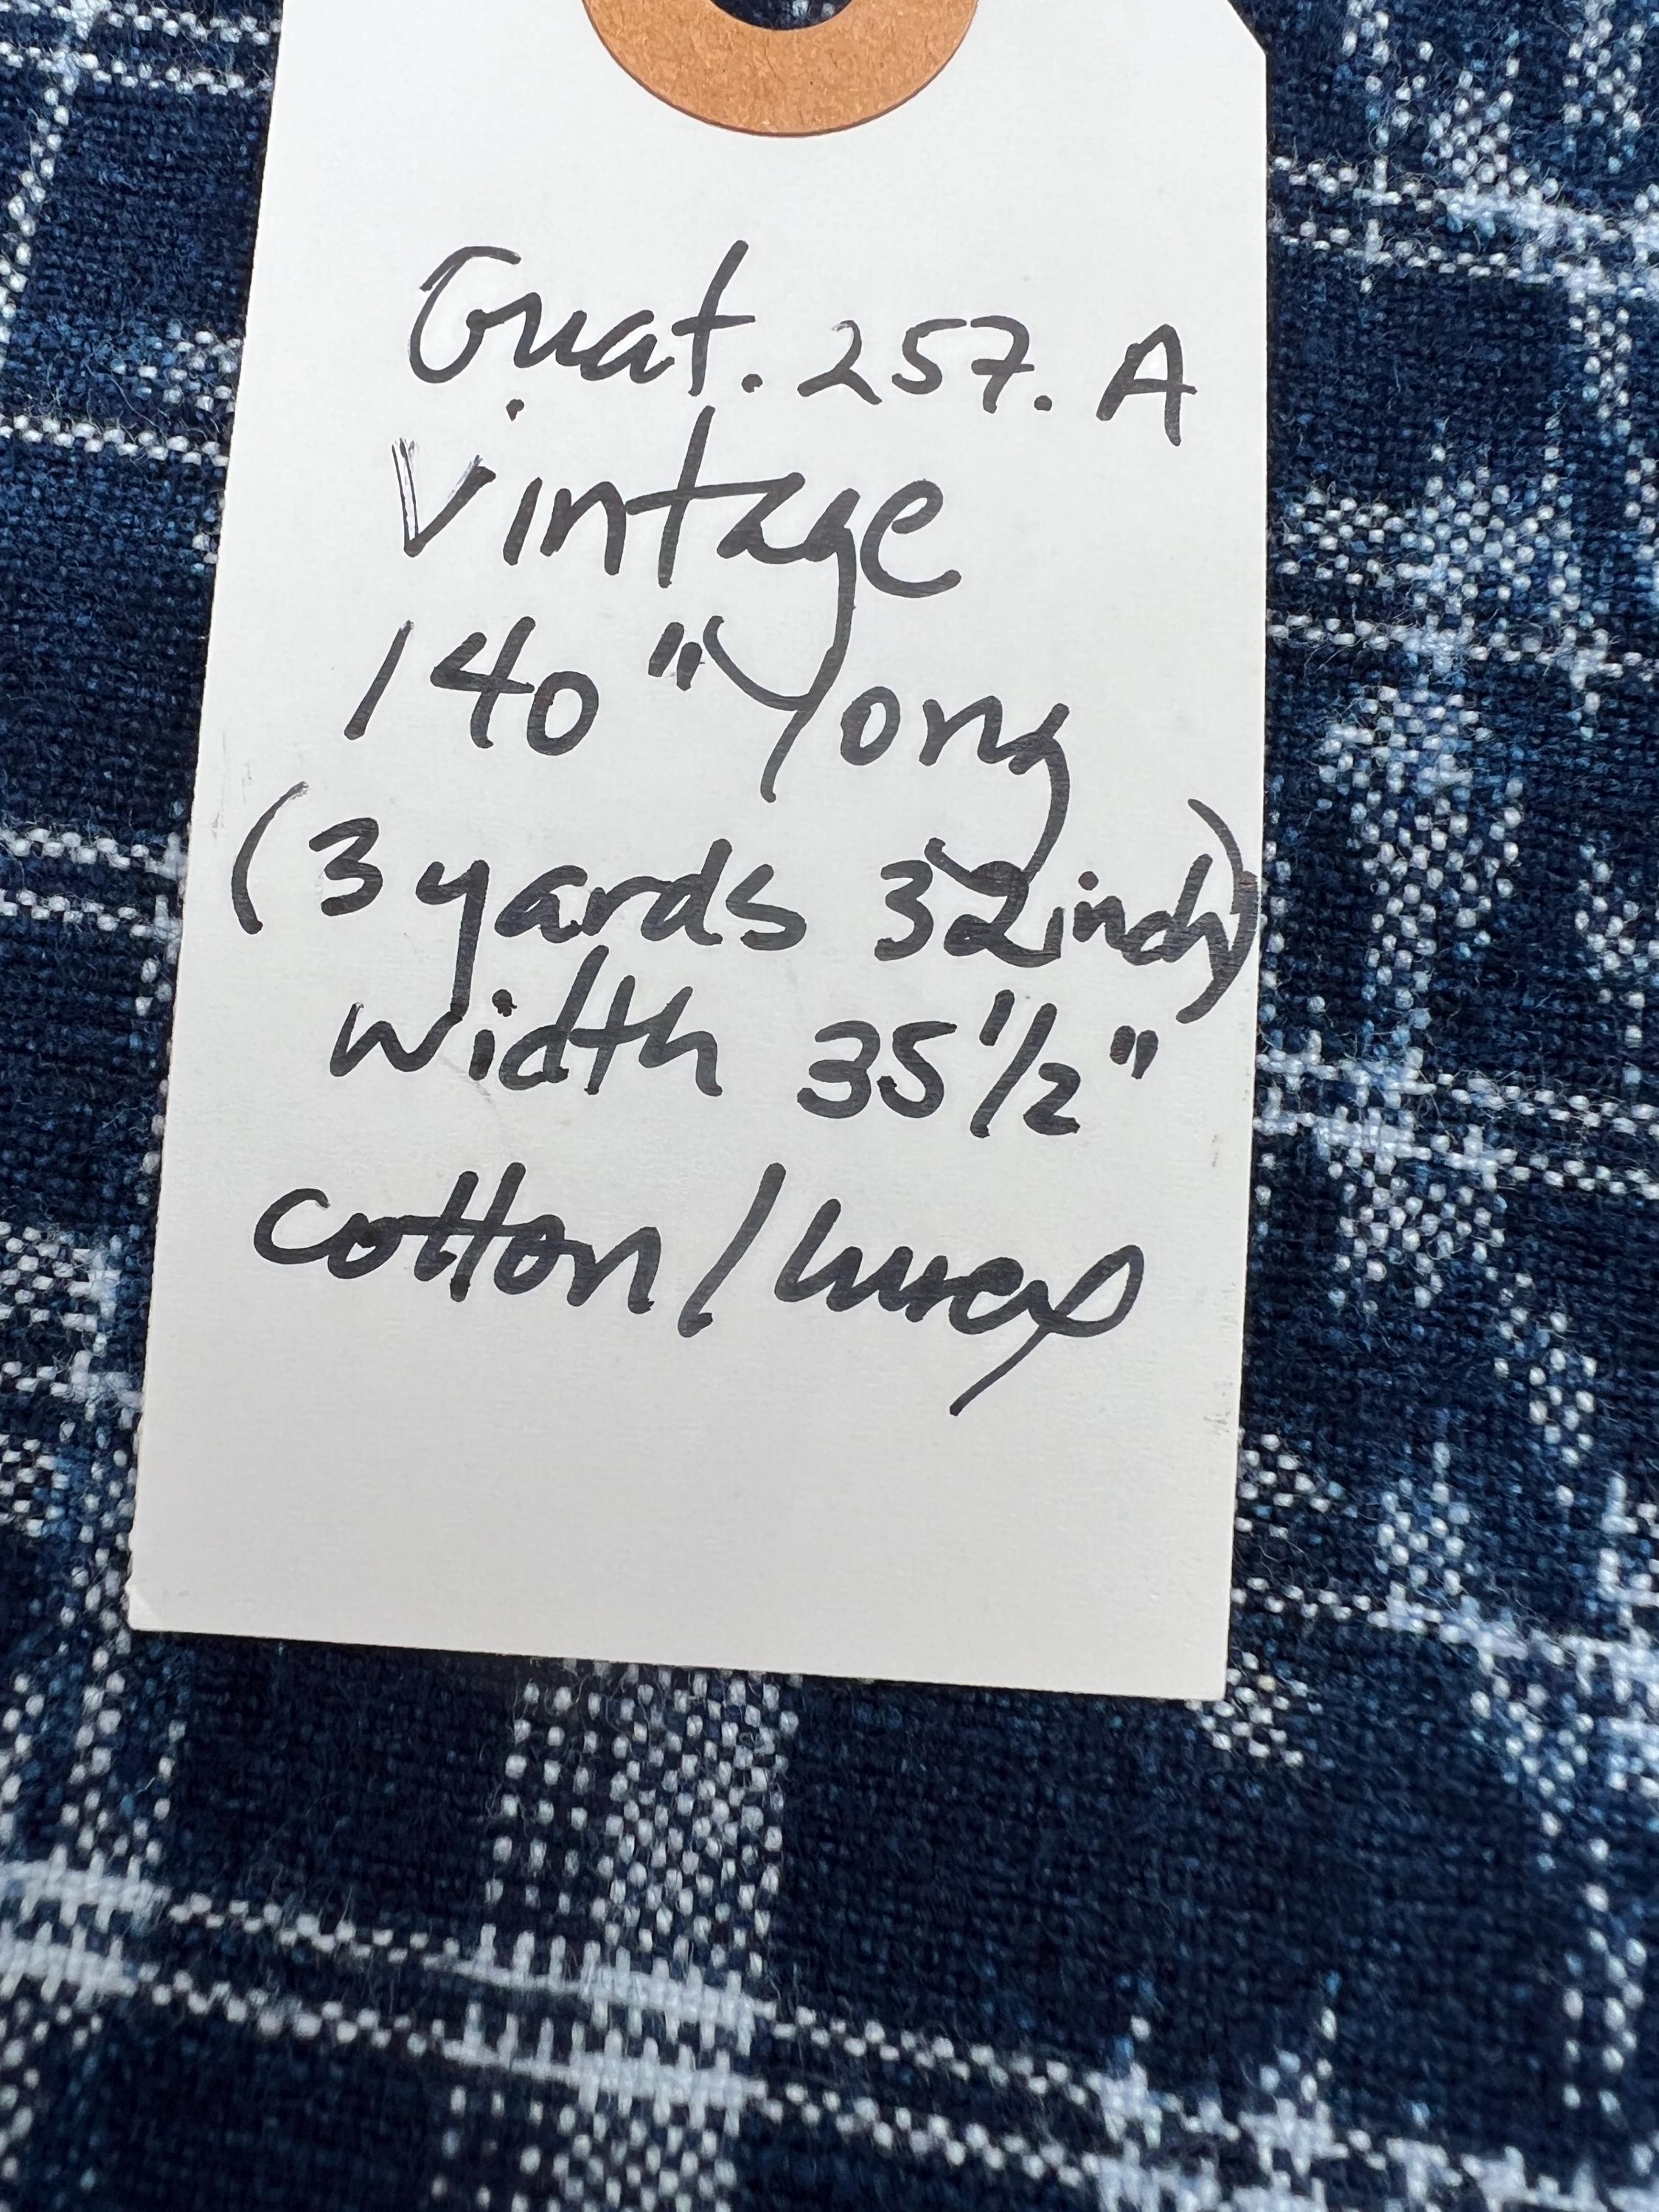 Guat. 257. A
Vintage
140" long
(3 yards 32 inch)
width 35 1/2"
cotton/lurex